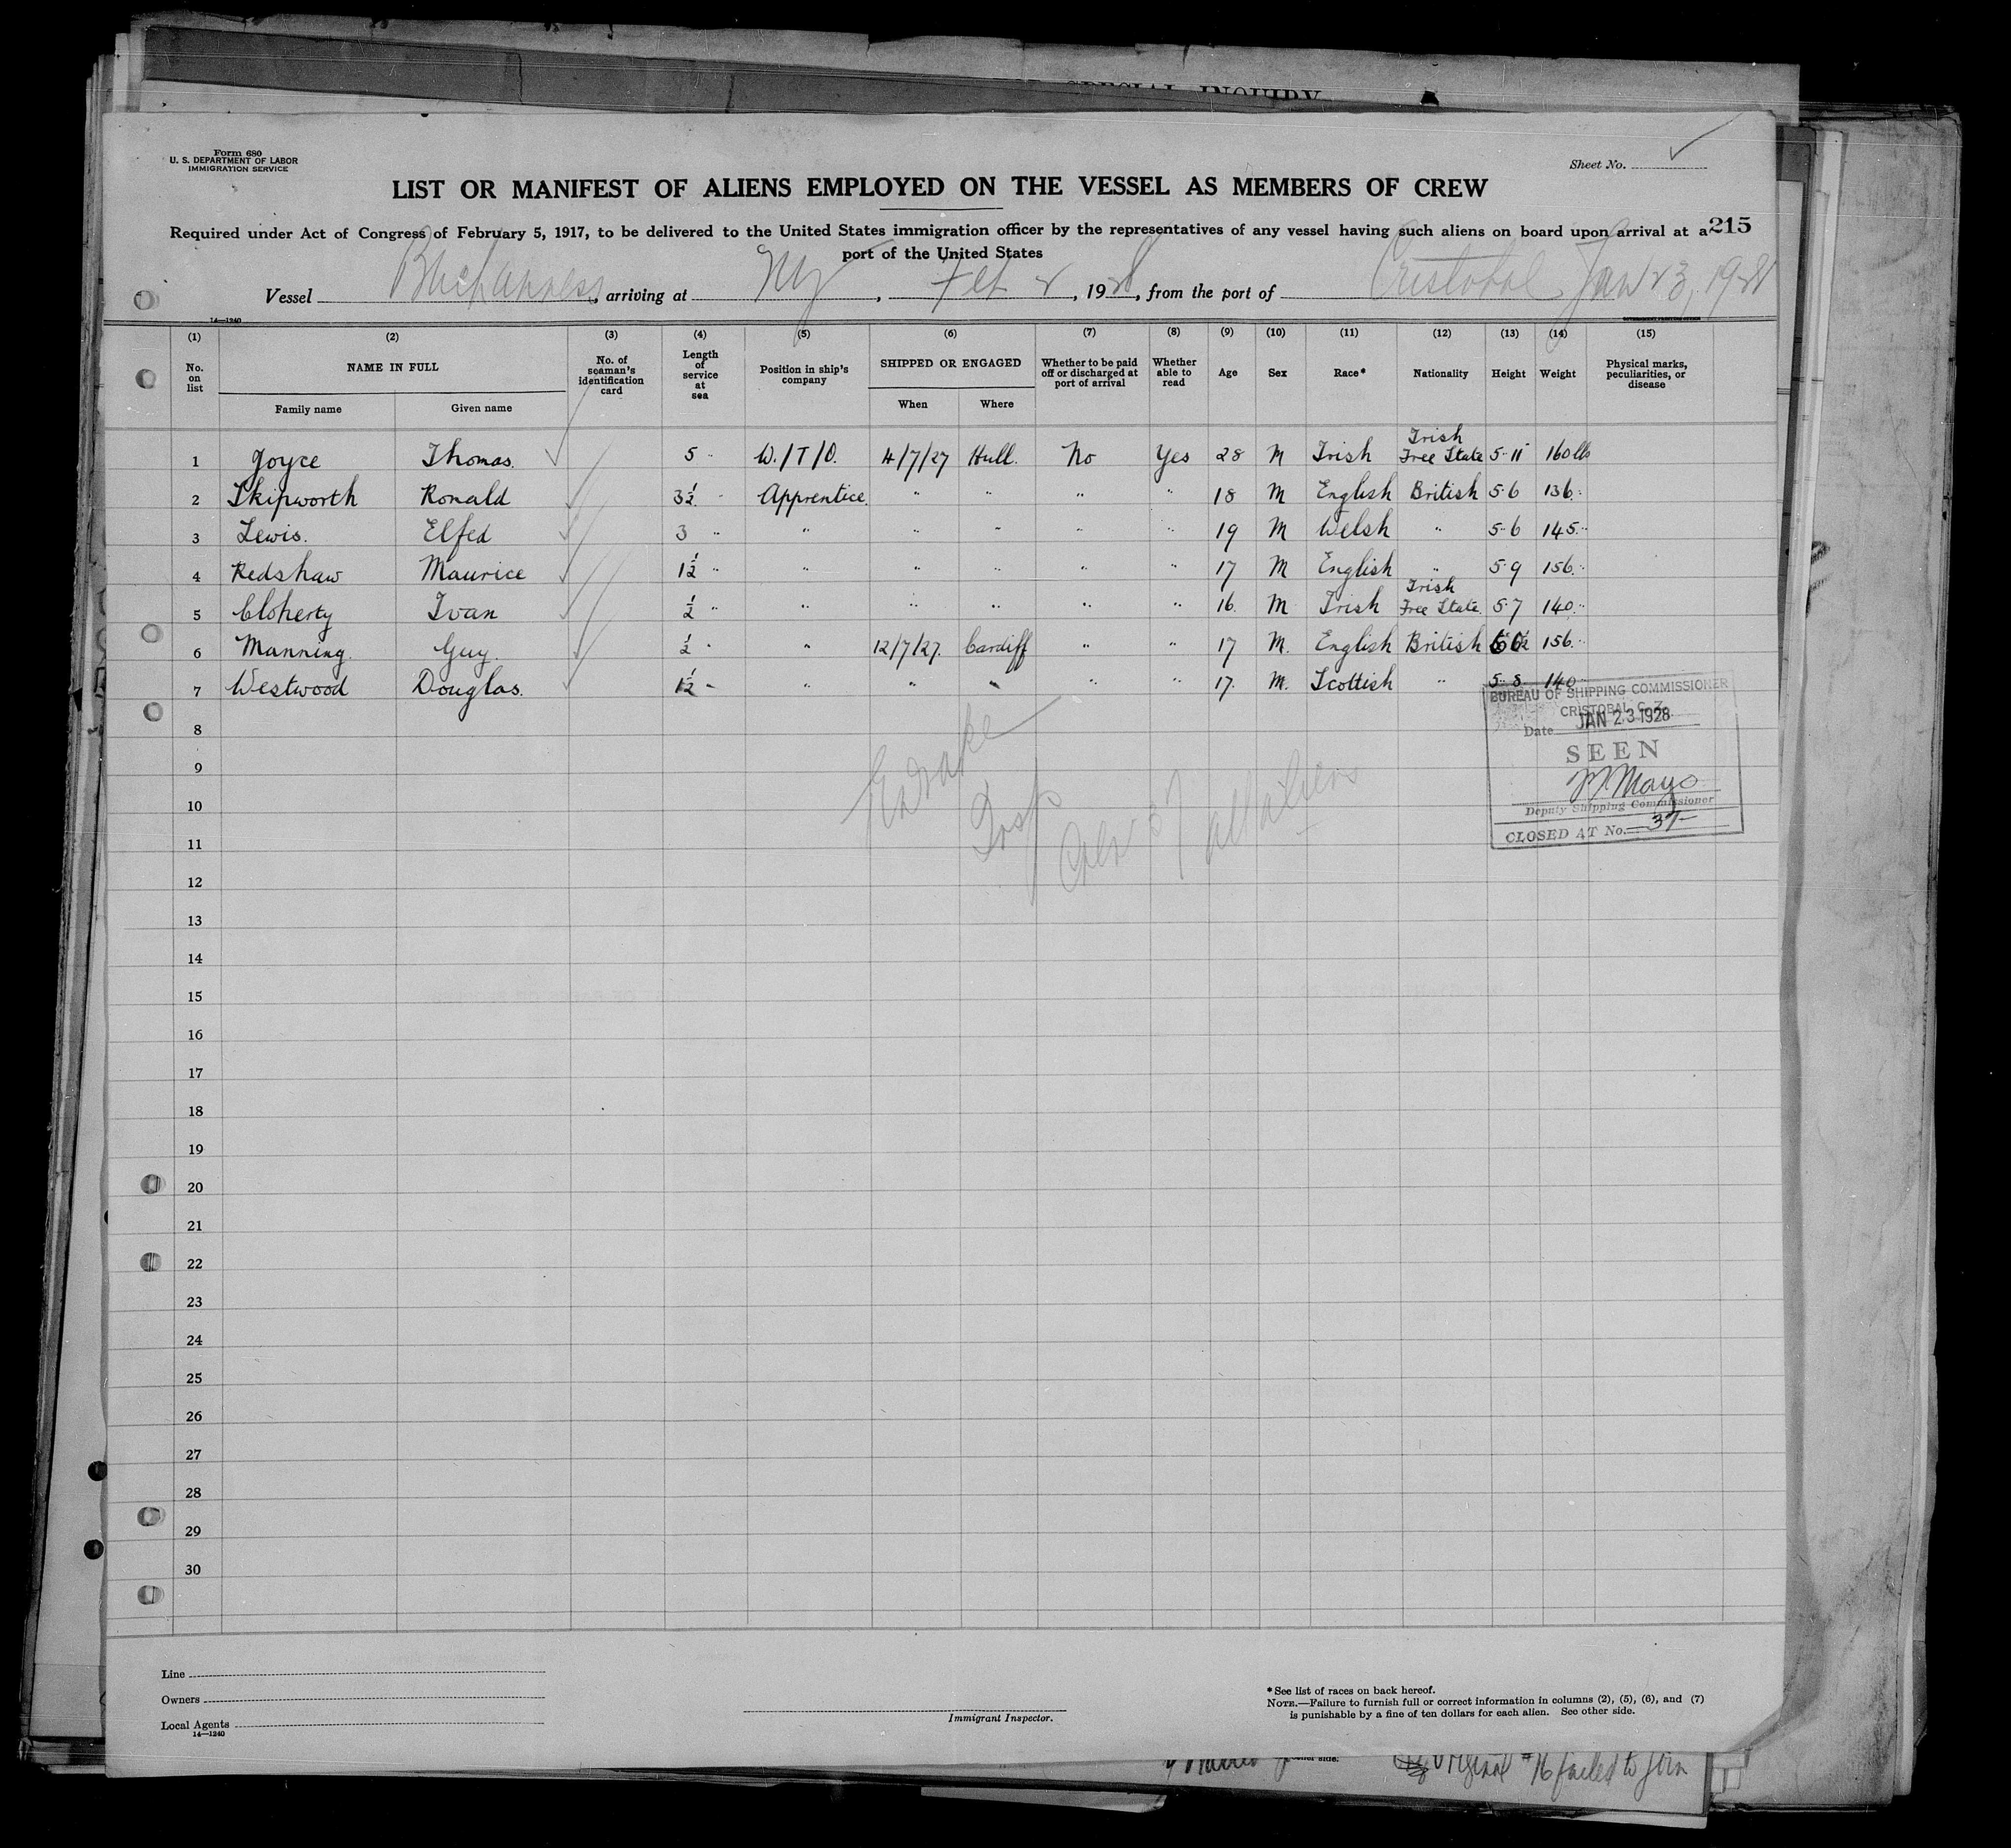 SPECIAL INQUIRY
Form 680
U. S. DEPARTMENT OF LABOR
IMMIGRATION SERVICE
Sheet No.
LIST OR MANIFEST OF ALIENS EMPLOYED ON THE VESSEL AS MEMBERS OF CREW
215
Required under Act of Congress of February 5, 1917, to be delivered to the United States immigration officer by the representatives of any vessel having such aliens on board upon arrival at a
port of the United States
Vessel , arriving at NY , Feb 2 , 1928, from the port of Cristobal Jan 23, 1928
14—1240
(1) (2) (3) (4) (5) (6) (7) (8) (9) (10) (11) (12) (13) (14) (15)
No. on list NAME IN FULL Family name Given name No. of seaman's identification card Length of service at sea Position in ship's company SHIPPED OR ENGAGED When Where Whether to be paid off or discharged at port of arrival Whether able to read Age Sex Race* Nationality Height Weight Physical marks, peculiarities, or disease
1 Joyce Thomas. 5 " W./T/O. 4/7/27 Hull. No Yes 28 M Irish Irish Free State 5-11 160 lb
2 Skipworth Ronald 3½ " Apprentice " " " " 18 M English British 5-6 136 "
3 Lewis. Elfed 3 " " " " " " 19 M Welsh " 5-6 145 "
4 Redshaw Maurice 1½ " " " " " " 17 M English " 5-9 156 "
5 Cloherty Ivan ½ " " " " " " 16 M Irish Irish Free State 5-7 140 "
6 Manning. Guy. ½ " " 12/7/27. Cardiff " " 17 M. English British 156 "
7 Westwood Douglas. 1½ " " " " " " 17. M. Scottish " 5-8 140
BUREAU OF SHIPPING COMMISSIONER
CRISTOBAL C. Z.
Date JAN 23 1928
SEEN
Mayo
Deputy Shipping Commissioner
CLOSED AT No. 37
Drake
Insp
all aliens
8
9
10
11
12
13
14
15
16
17
18
19
20
21
22
23
24
25
26
27
28
29
30
Line
Owners
Local Agents
14—1240
Immigrant Inspector.
* See list of races on back hereof.
NOTE.—Failure to furnish full or correct information in columns (2), (5), (6), and (7)
is punishable by a fine of ten dollars for each alien. See other side.
other side.
Original #16 failed to join